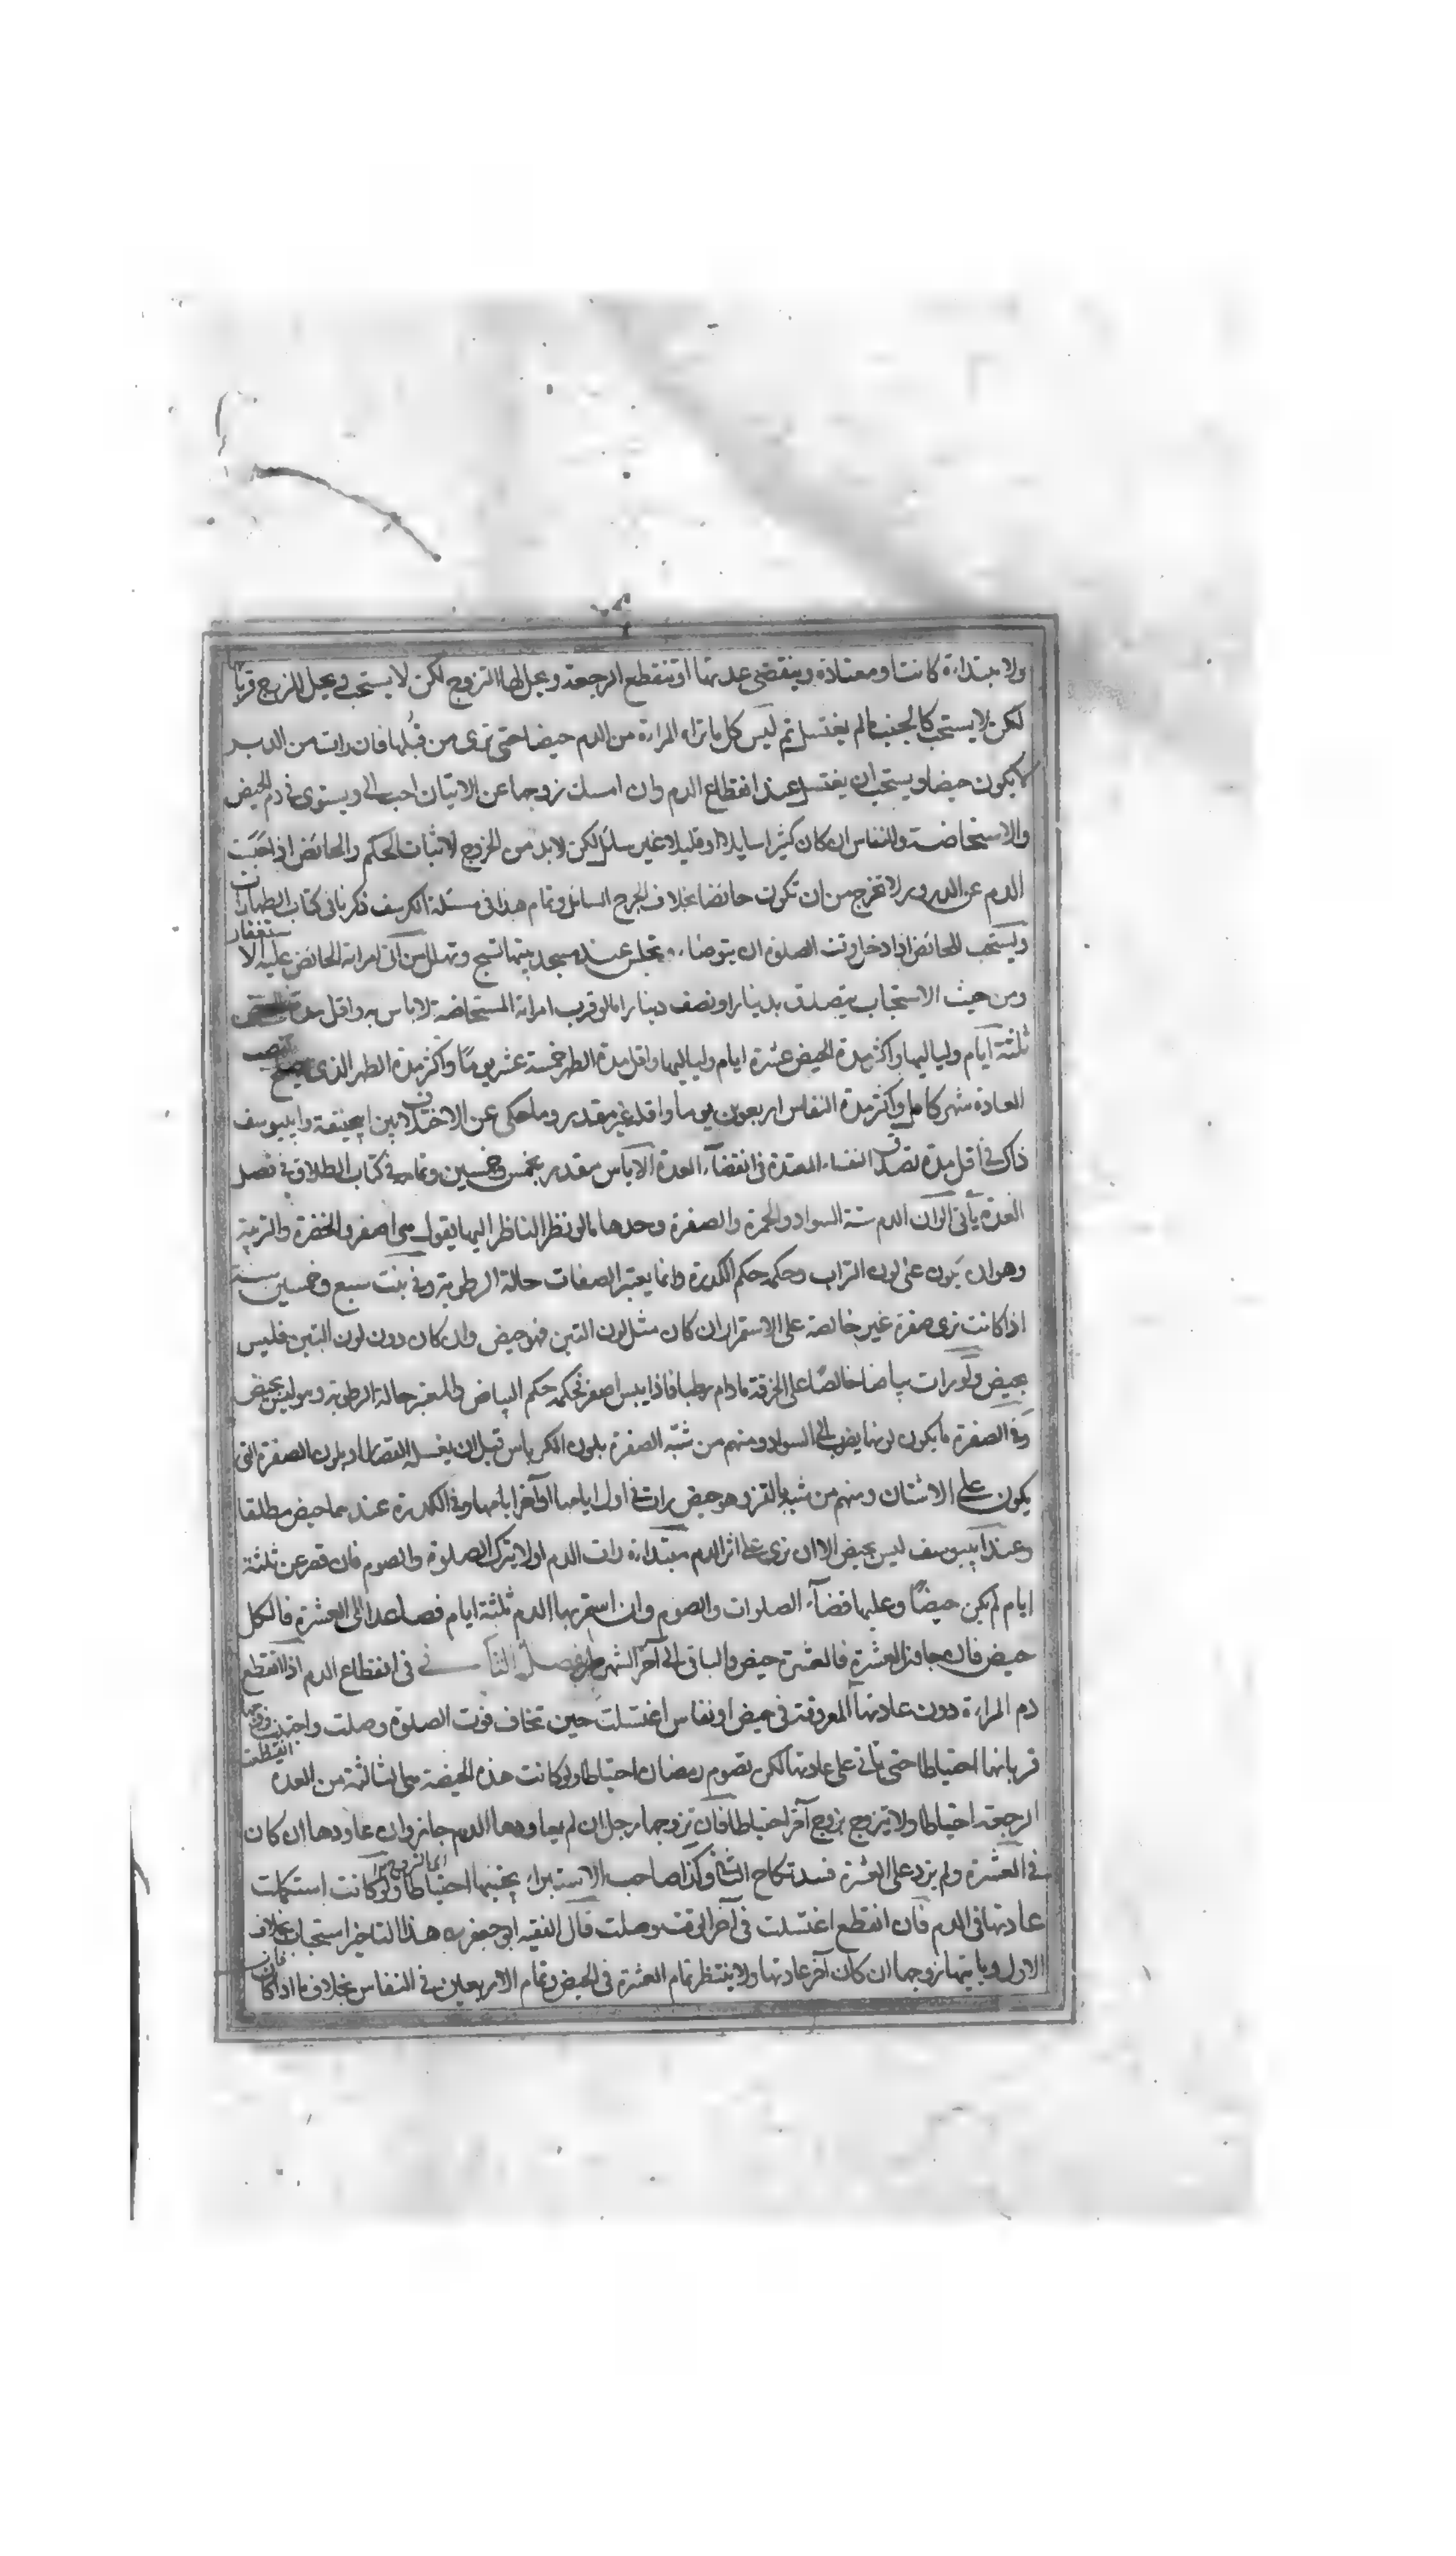 ولا مبتداءة كانت او معتادة وينقضى عدتها او تنقطع الرجعة ويحل لها التزوج لكن لا يستحب ويحل للزوج قربانها
لكن لا يستحب كالجنب مالم يغتسل ثم ليس كل ما تراه المراءة من الدم حيضا حتى ترى من قبلها فان رات من الدبر
لا يكون حيضا ويستحب ان يغتسل عند انقطاع الدم وان امسك زوجها عن الاتيان احب الى ويستوى فى دم الحيض
والاستحاضة والنفاس ان كان كثيرا سايلا او قليلا غير سائل لكن لابد من الخروج لاثبات الحكم والحائض اذا احتبست
الدم عن الدرور لا تخرج من ان تكون حائضا بخلاف الجرح السائل وتمام هذا فى مسئلة الكرسف ذكرنا فى كتاب الطهارات
ويستحب للحائض اذا دخل وقت الصلوة ان يتوضاء وتجلس عند مسجد بيتها تسبح وتهلل من اتى امراته الحائض عليه الاستغفار
ومن حيث الاستحباب يتصدق بدينار او نصف دينار امالو قرب امراته المستحاضة لا باس به واقل مدة
ثلثة ايام ولياليها واكثر مدة الحيض عشرة ايام ولياليها واقل مدة الطهر خمسة عشر يوما واكثر مدة الطهر الذى
العادة شهر كامل واكثر مدة النفاس اربعون يوما واقله غير مقدر وما حكى عن الاختلاف بين ابيحنيفة وابييوسف
ذاك فى اقل مدة تصدق النفساء المعتدة فى انقضاء العدة الاياس مقدر بخمس وخمسين وتمامه فى كتاب الطلاق فى فصل
العدة يأتى الوان الدم ستة السواد والحمرة والصفرة وحدها مالو نظر الناظر اليها يقول هى اصفر والخضرة والتربية
وهو ان يكون على لون التراب وحكمه حكم الكدرة وانما يعتبر الصفات حالة الرطوبة وفى بنت سبع وخمسين سنة
اذا كانت ترى صفرة غير خالصة على الاستمرار ان كان مثل لون التبن فهو حيض وان كان دون لون التبن فليس
بحيض ولو رات بياضا خالصا على الخرقة مادام رطبا فاذا يبس اصفر فحكمه حكم البياض والمعتبر حالة الرطوبة وهو ليس بحيض
وفى الصفرة ما يكون لونها يضرب الى السواد ومنهم من شبه الصفرة بلون الكرباس قبل ان يغسله القصار او بلون الصفرة التى
يكون على الاسنان ومنهم من شبه بالقز وهو حيض رات فى اول ايامها او آخر ايامها وفى الكدرة عندهما حيض مطلقا
وعند ابييوسف ليس بحيض الا ان ترى على اثر الدم مبتداءة رات الدم اولا يترك الصلوة والصوم فان قصر عن ثلثة
ايام لم يكن حيضا وعليها قضآء الصلوات والصوم وان استمر بها الدم ثلثة ايام فصاعدا الى العشرة فالكل
حيض فان جاوز العشرة فالعشرة حيض والباقى الى آخر الشهر طهر فصل الثانى فى انقطاع الدم اذا انقطع
دم المراءة دون عادتها المعروفة فى حيض او نفاس اغتسلت حين تخاف فوت الصلوة وصلت واجتنب زوجها
قربانها احتياطا حتى تأتى على عادتها لكن تصوم رمضان احتياطا ولو كانت هذه الحيضة هى الثالثة من العدة انقطعت
الرجعة احتياطا ولا يتزوج بزوج آخر احتياطا فان تزوجها رجل ان لم يعاودها الدم جاز وان عاودها ان كان
فى العشرة ولم يزد على العشرة فسد نكاح الثانى وكذا صاحب الاستبراء يجتنبها احتياطا ولو كانت استكملت
عادتها فى الدم فان انقطع اغتسلت فى آخر الوقت وصلت قال الفقيه ابو جعفر ره هذا التاخير استحباب بخلاف
الاول ويا يتها زوجها ان كان آخر عادتها ولا ينتظر تمام العشرة فى الحيض وتمام الاربعين فى النفاس بخلاف ما اذا كان